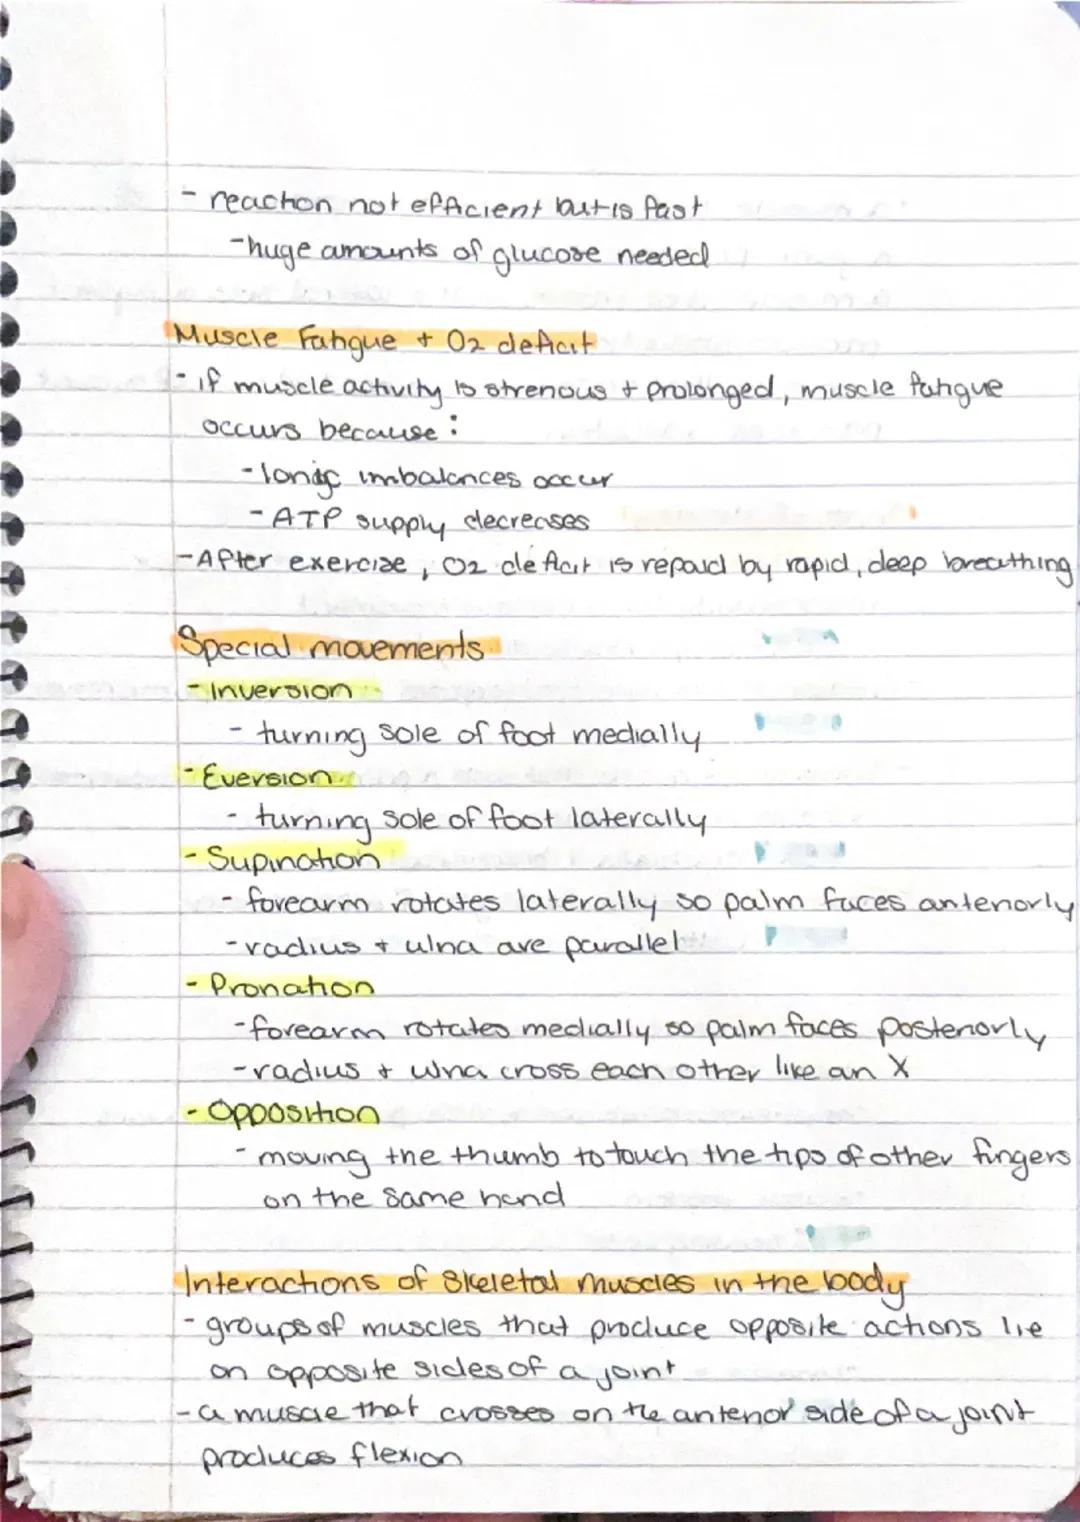 - reaction not efficient but is fast
- huge amounts of glucose needed
Muscle Fatigue + O2 deficit
- if muscle activity is strenous + prolonged, muscle fatigue
occurs because:
- Ionic imbalances occur
- ATP supply decreases
- After exercise, O2 deficit is repaid by rapid, deep breathing
Special movements
- Inversion
- turning sole of foot medially
- Eversion
- turning sole of foot laterally
- Supination
- forearm rotates laterally so palm faces anteriorly
- radius + ulna are parallel
- Pronation
- forearm rotates medially so palm faces posteriorly
- radius + ulna cross each other like an X
- Opposition
- moving the thumb to touch the tips of other fingers
on the same hand
Interactions of Skeletal muscles in the body
- groups of muscles that produce opposite actions lie
on opposite sides of a joint
- a muscle that crosses on the anterior side of a joint
produces flexion